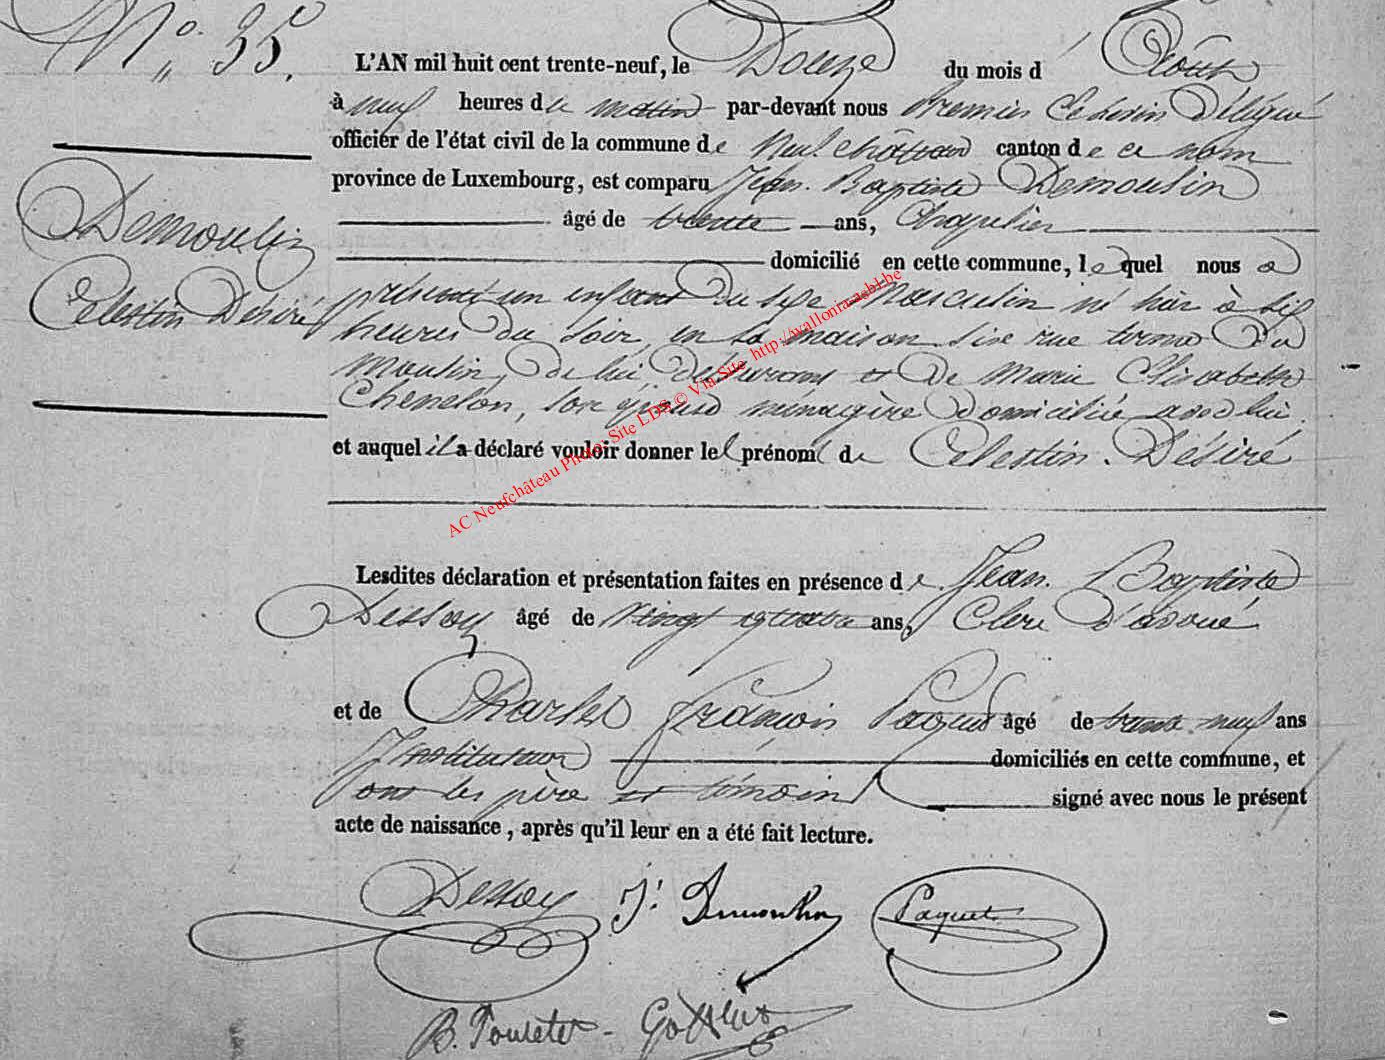 N° 35.
L'AN mil huit cent trente-neuf, le Douze du mois d' Août
à neuf heures du matin par-devant nous Premier Echevin Délégué
officier de l'état civil de la commune de Neufchâteau canton de ce nom
province de Luxembourg, est comparu Jean Baptiste Demoulin
âgé de trente ans, Chapelier
domicilié en cette commune, lequel nous a
présenté un enfant du sexe masculin né hier à six
heures du soir, en sa maison sise rue terme du
moulin, de lui déclarant et de Marie Elisabeth
Chenelon, son épouse ménagère domiciliée avec lui
et auquel il a déclaré vouloir donner le prénom de Celestin Désiré
Demoulin
Celestin Désiré
AC Neufchâteau Photo: Site LDS © Via Site http://wallonia-asbl.be
Lesdites déclaration et présentation faites en présence de Jean Baptiste
Dessoy âgé de vingt quatre ans, Clerc d'avoué
et de Charles François Paquet âgé de trente neuf ans
Instituteur domiciliés en cette commune, et
ont les père et témoins signé avec nous le présent
acte de naissance, après qu'il leur en a été fait lecture.
Dessoy J. Demoulin Paquet